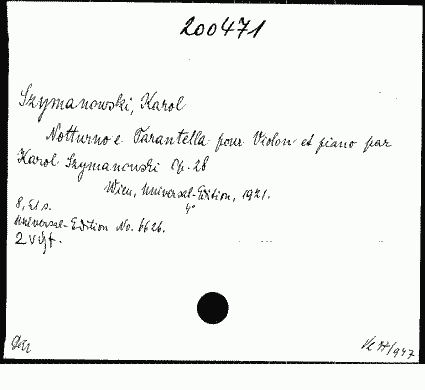 200471
Szymanowski, Karol
Notturno e Tarantella pour Violon et piano par
Karol Szymanowski Op. 28
Wien, Universal-Edition, 1921.
8, 21 s. 4°
Universal-Edition No. 6626.
2 výt.